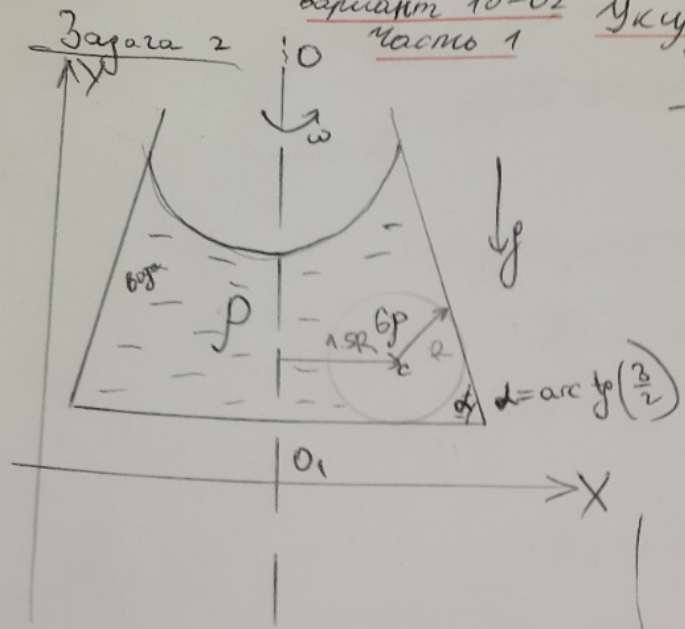 Вариант 10-02
Часть 1
Задача 2
Y
O
ω
g
вода
ρ
1.5R
6ρ
R
c
α
α=arc tg(3/2)
O₁
X